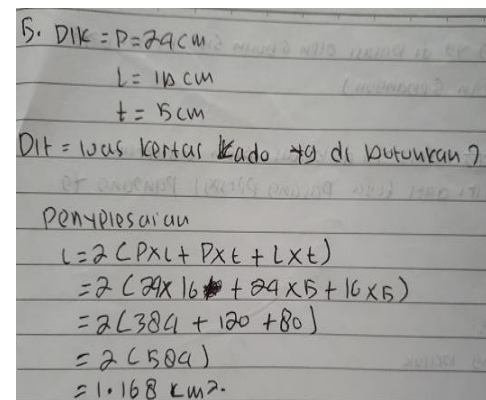 5. Dik = P = 24 cm
l = 16 cm
t = 5 cm
Dit = luas kertas kado yg di butuhkan?
Penyelesaian
L = 2 (Pxl + Pxt + Lxt)
= 2 (24x16 + 24x5 + 16x5)
= 2 (384 + 120 + 80)
= 2 (584)
= 1.168 cm2.